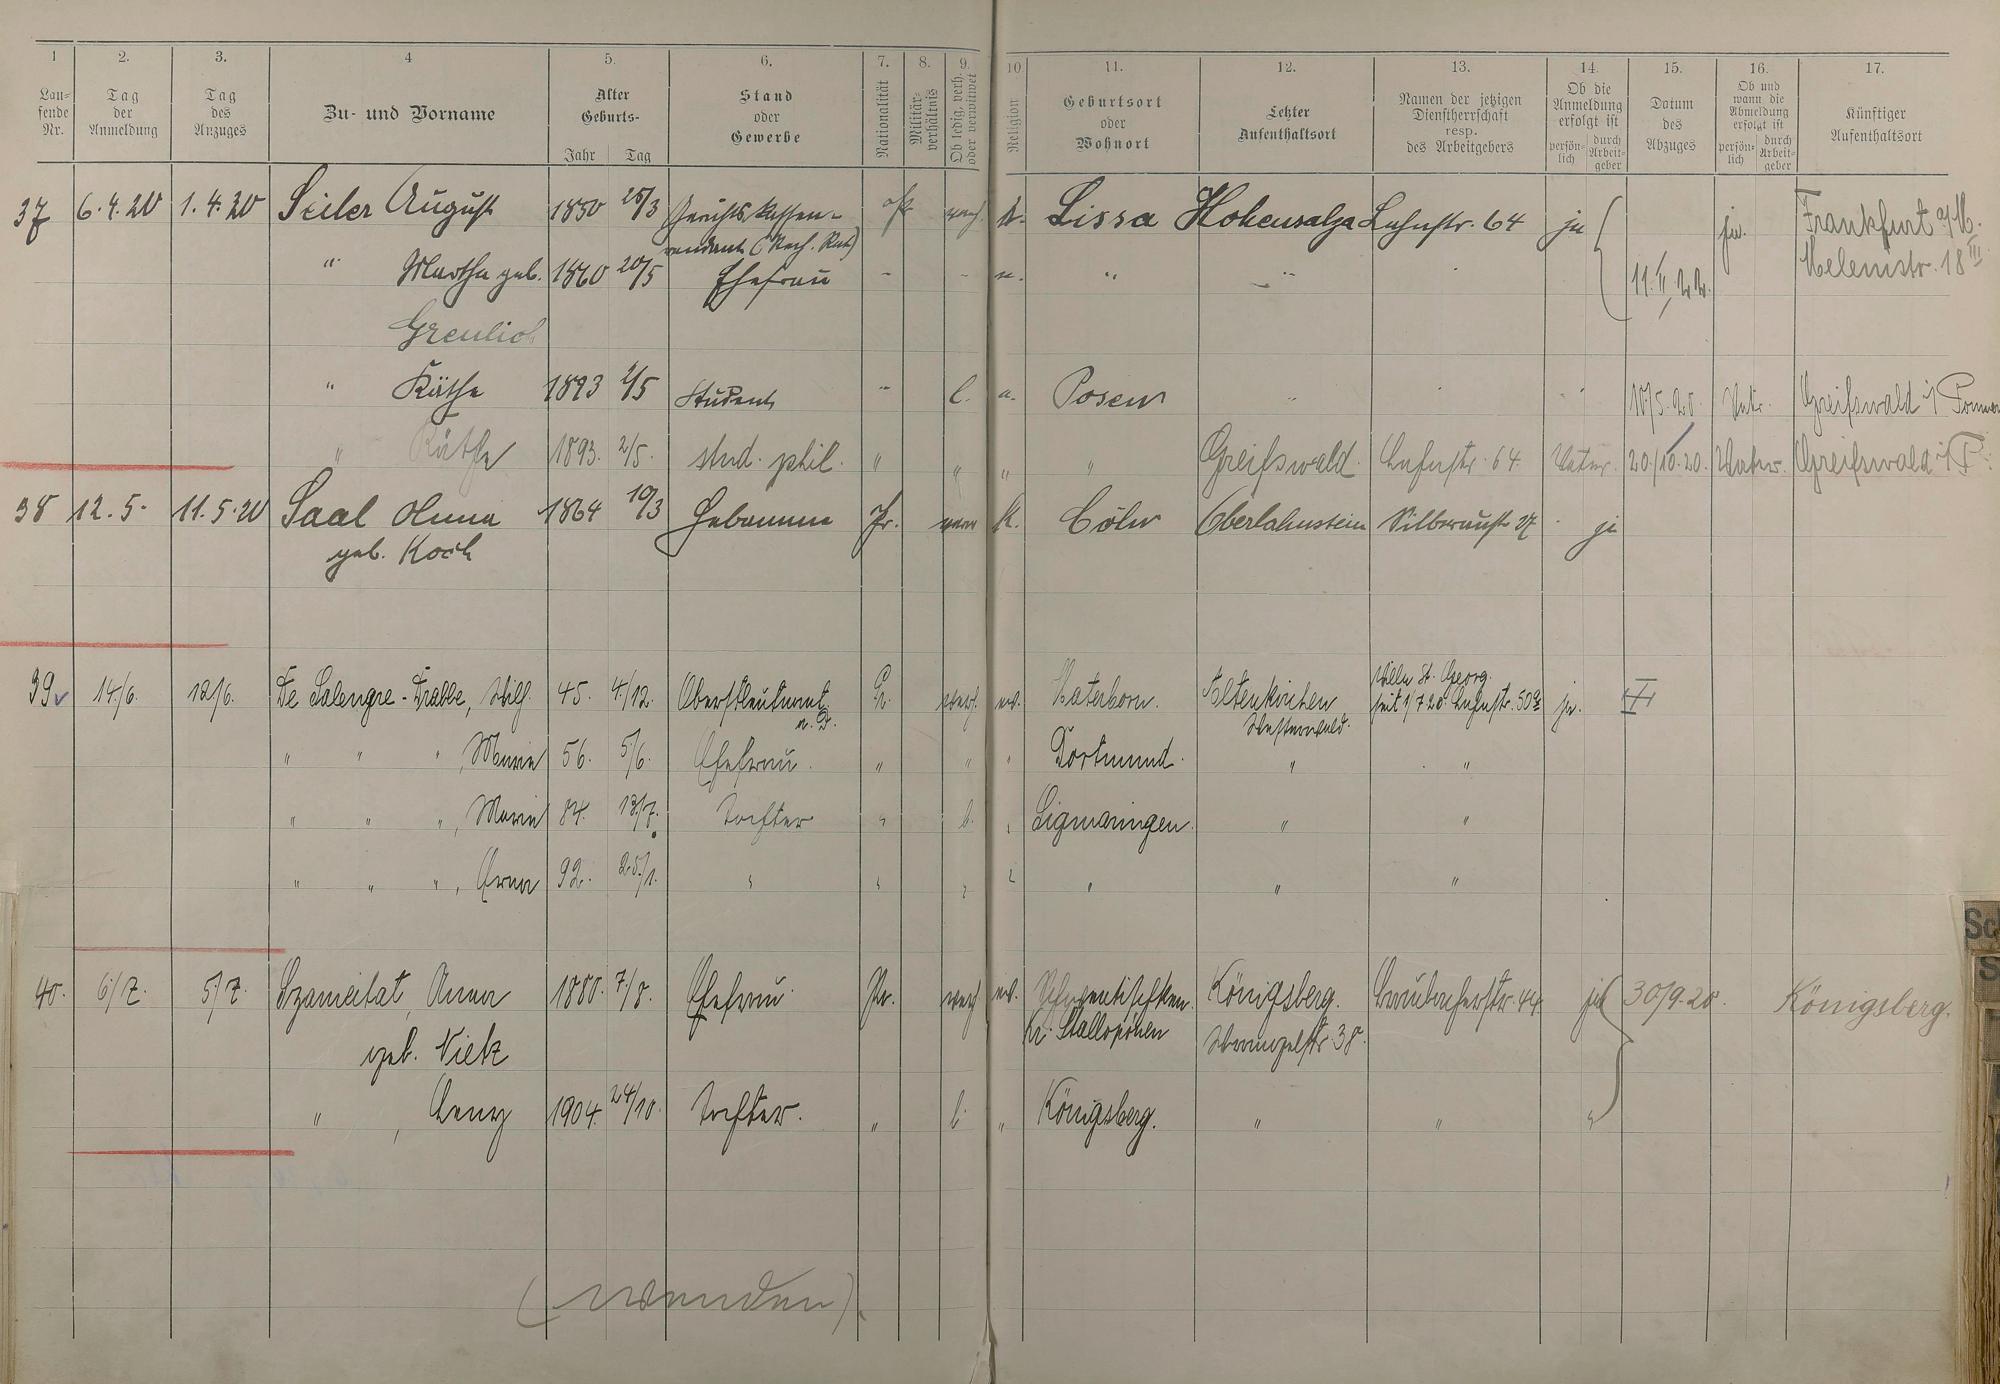 1 2. 3. 4 5. 6. 7. 8. 9. 10 11. 12. 13. 14. 15. 16. 17.
Laufende Nr. Tag der Anmeldung Tag des Anzuges Zu- und Vorname Alter Geburts- Jahr Tag Stand oder Gewerbe Nationalität Militärverhältnis Ob ledig, verh. oder verwitwet Religion Geburtsort oder Wohnort Letzter Aufenthaltsort Namen der jetzigen Dienstherrschaft resp. des Arbeitgebers Ob die Anmeldung erfolgt ist persönlich durch Arbeitgeber Datum des Abzuges Ob und wann die Abmeldung erfolgt ist persönlich durch Arbeitgeber Künftiger Aufenthaltsort
37 6.4.20 1.4.20 Seiler August 1850 25/3 Gerichtskassen- Lissa Hohensalza Luhnstr. 64 ja ja. Frankfurt a/M.
rendant (Rech. Rat)
" Martha geb. 1860 20/5 Ehefrau - - " " 11.II.22. Melemstr. 18 III
Greulich
" Käthe 1893 2/5 Student " l. Posen " 10/5.20 Greifswald i/ Pommern
" Käthe 1893. 2/5. stud. phil. " " " " Greifswald. Luhnstr. 64. Vater. 20./10.20. Vater. Greifswald i/P.
38 12.5. 11.5.20 Saal Anna 1864 10/3 Hebamme Pr. K. Cöln Oberlahnstein 27 ja
geb. Koch
39 14./6. 12/6. De Salengre-Drabbe, Wilh. 45. 4./12. Oberstleutnant Pr. verh. ev. Materborn. Altenkirchen Villa St. Georg.
a. D. Westerwald. seit 1/7 20. Luhnstr. 50a ja.
" " ", Maria 56. 5/6. Ehefrau. " " " Dortmund. " "
" " ", Maria 84. 13/7. Tochter " l. " Sigmaringen. " "
" " ", Erna 92. 25/1. " " " " " " "
40. 6/7. 5/7. Szameitat, Anna 1880. 7/8. Ehefrau. Pr. verh. ev. Königsberg. 44. ja 30/9.20. Königsberg.
geb. Vietz Kr. Stallopönen Wrangelstr. 38.
" , Leny 1904. 24/10. Tochter. " l. " Königsberg. " " "
(wenden).